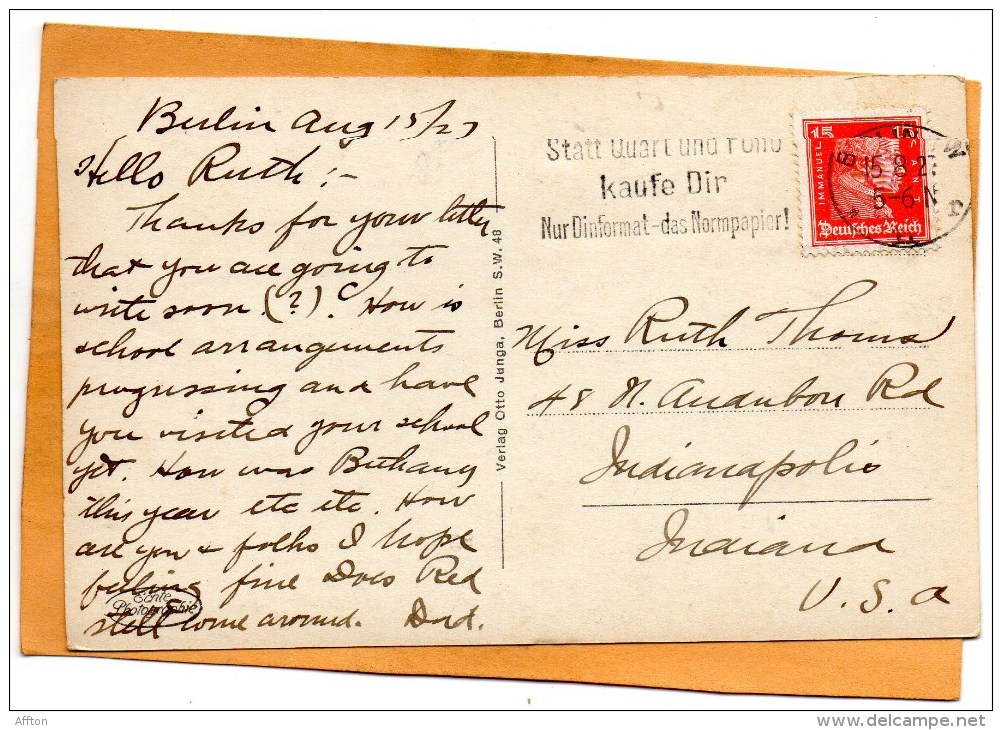 Berlin Aug 15/27
Hello Ruth :-
Thanks for your letter
that you are going to
write soon (?). How is
school arrangements
progressing and have
you visited your school
yet. How was Bethany
this year etc etc. How
are you & folks I hope
feeling fine Does Red
still come around. Dad.
Echte
Photographie
Verlag Otto Junga, Berlin S.W. 48
Statt Quart und Folio
kaufe Dir
Nur Dinformat-das Normpapier!
15 15
IMMANUEL KANT
Deutsches Reich
BERLIN
15.8.27
5-6 N
Miss Ruth Thomas
48 N. Audubon Rd
Indianapolis
Indiana
U. S. a
Affton
delcampe.net